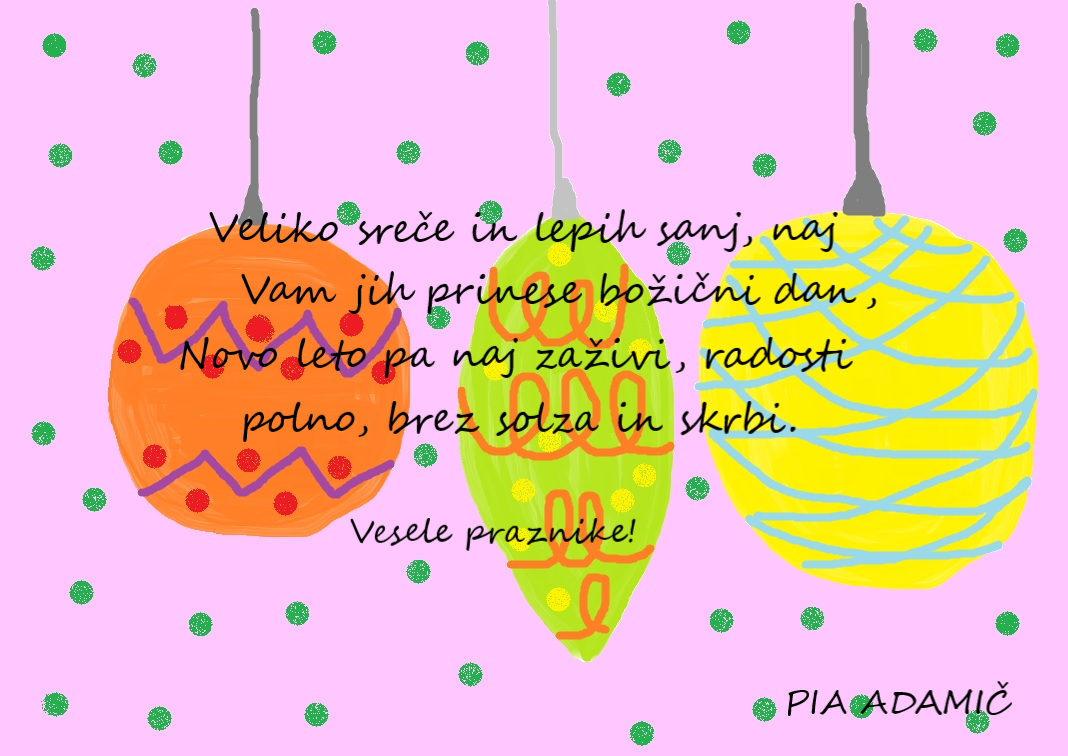 Veliko sreče in lepih sanj, naj
Vam jih prinese božični dan,
Novo leto pa naj zaživi, radosti
polno, brez solza in skrbi.
Vesele praznike!
PIA ADAMIČ